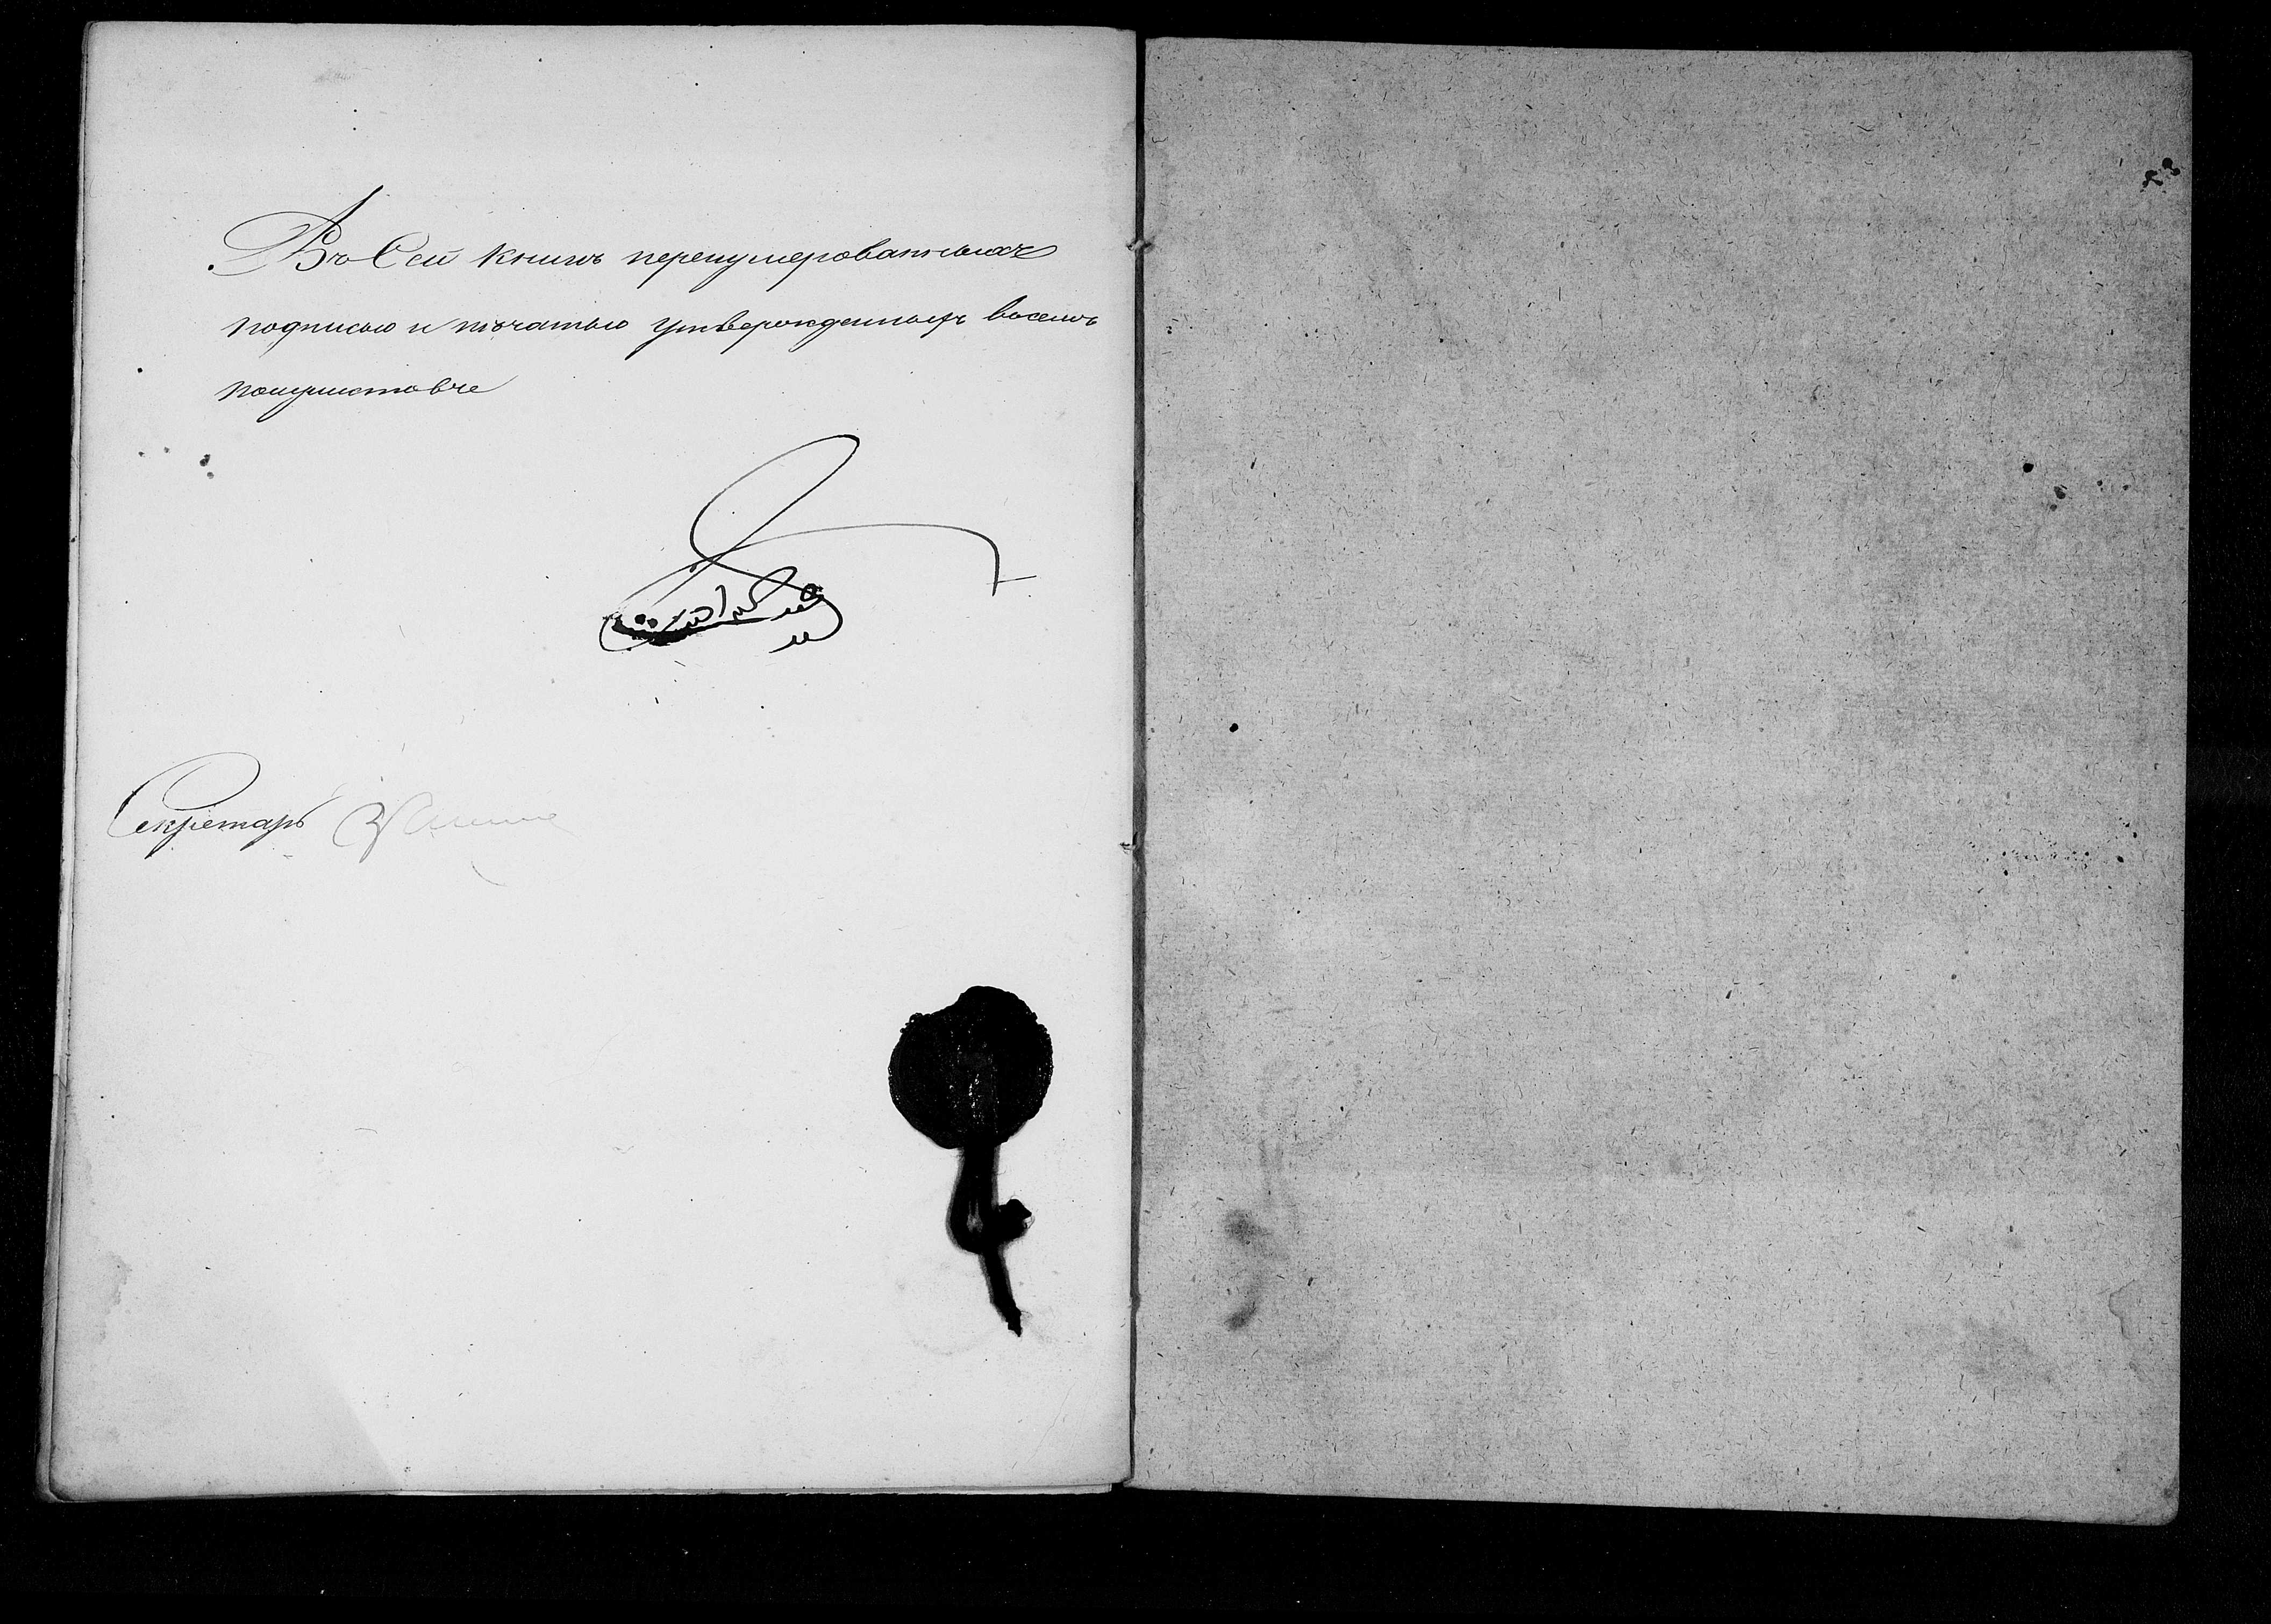 Въ Сей книгѣ перенумерованныхъ
подписью и печатью утвержденныхъ восемь
полулистовъ
Секретарь